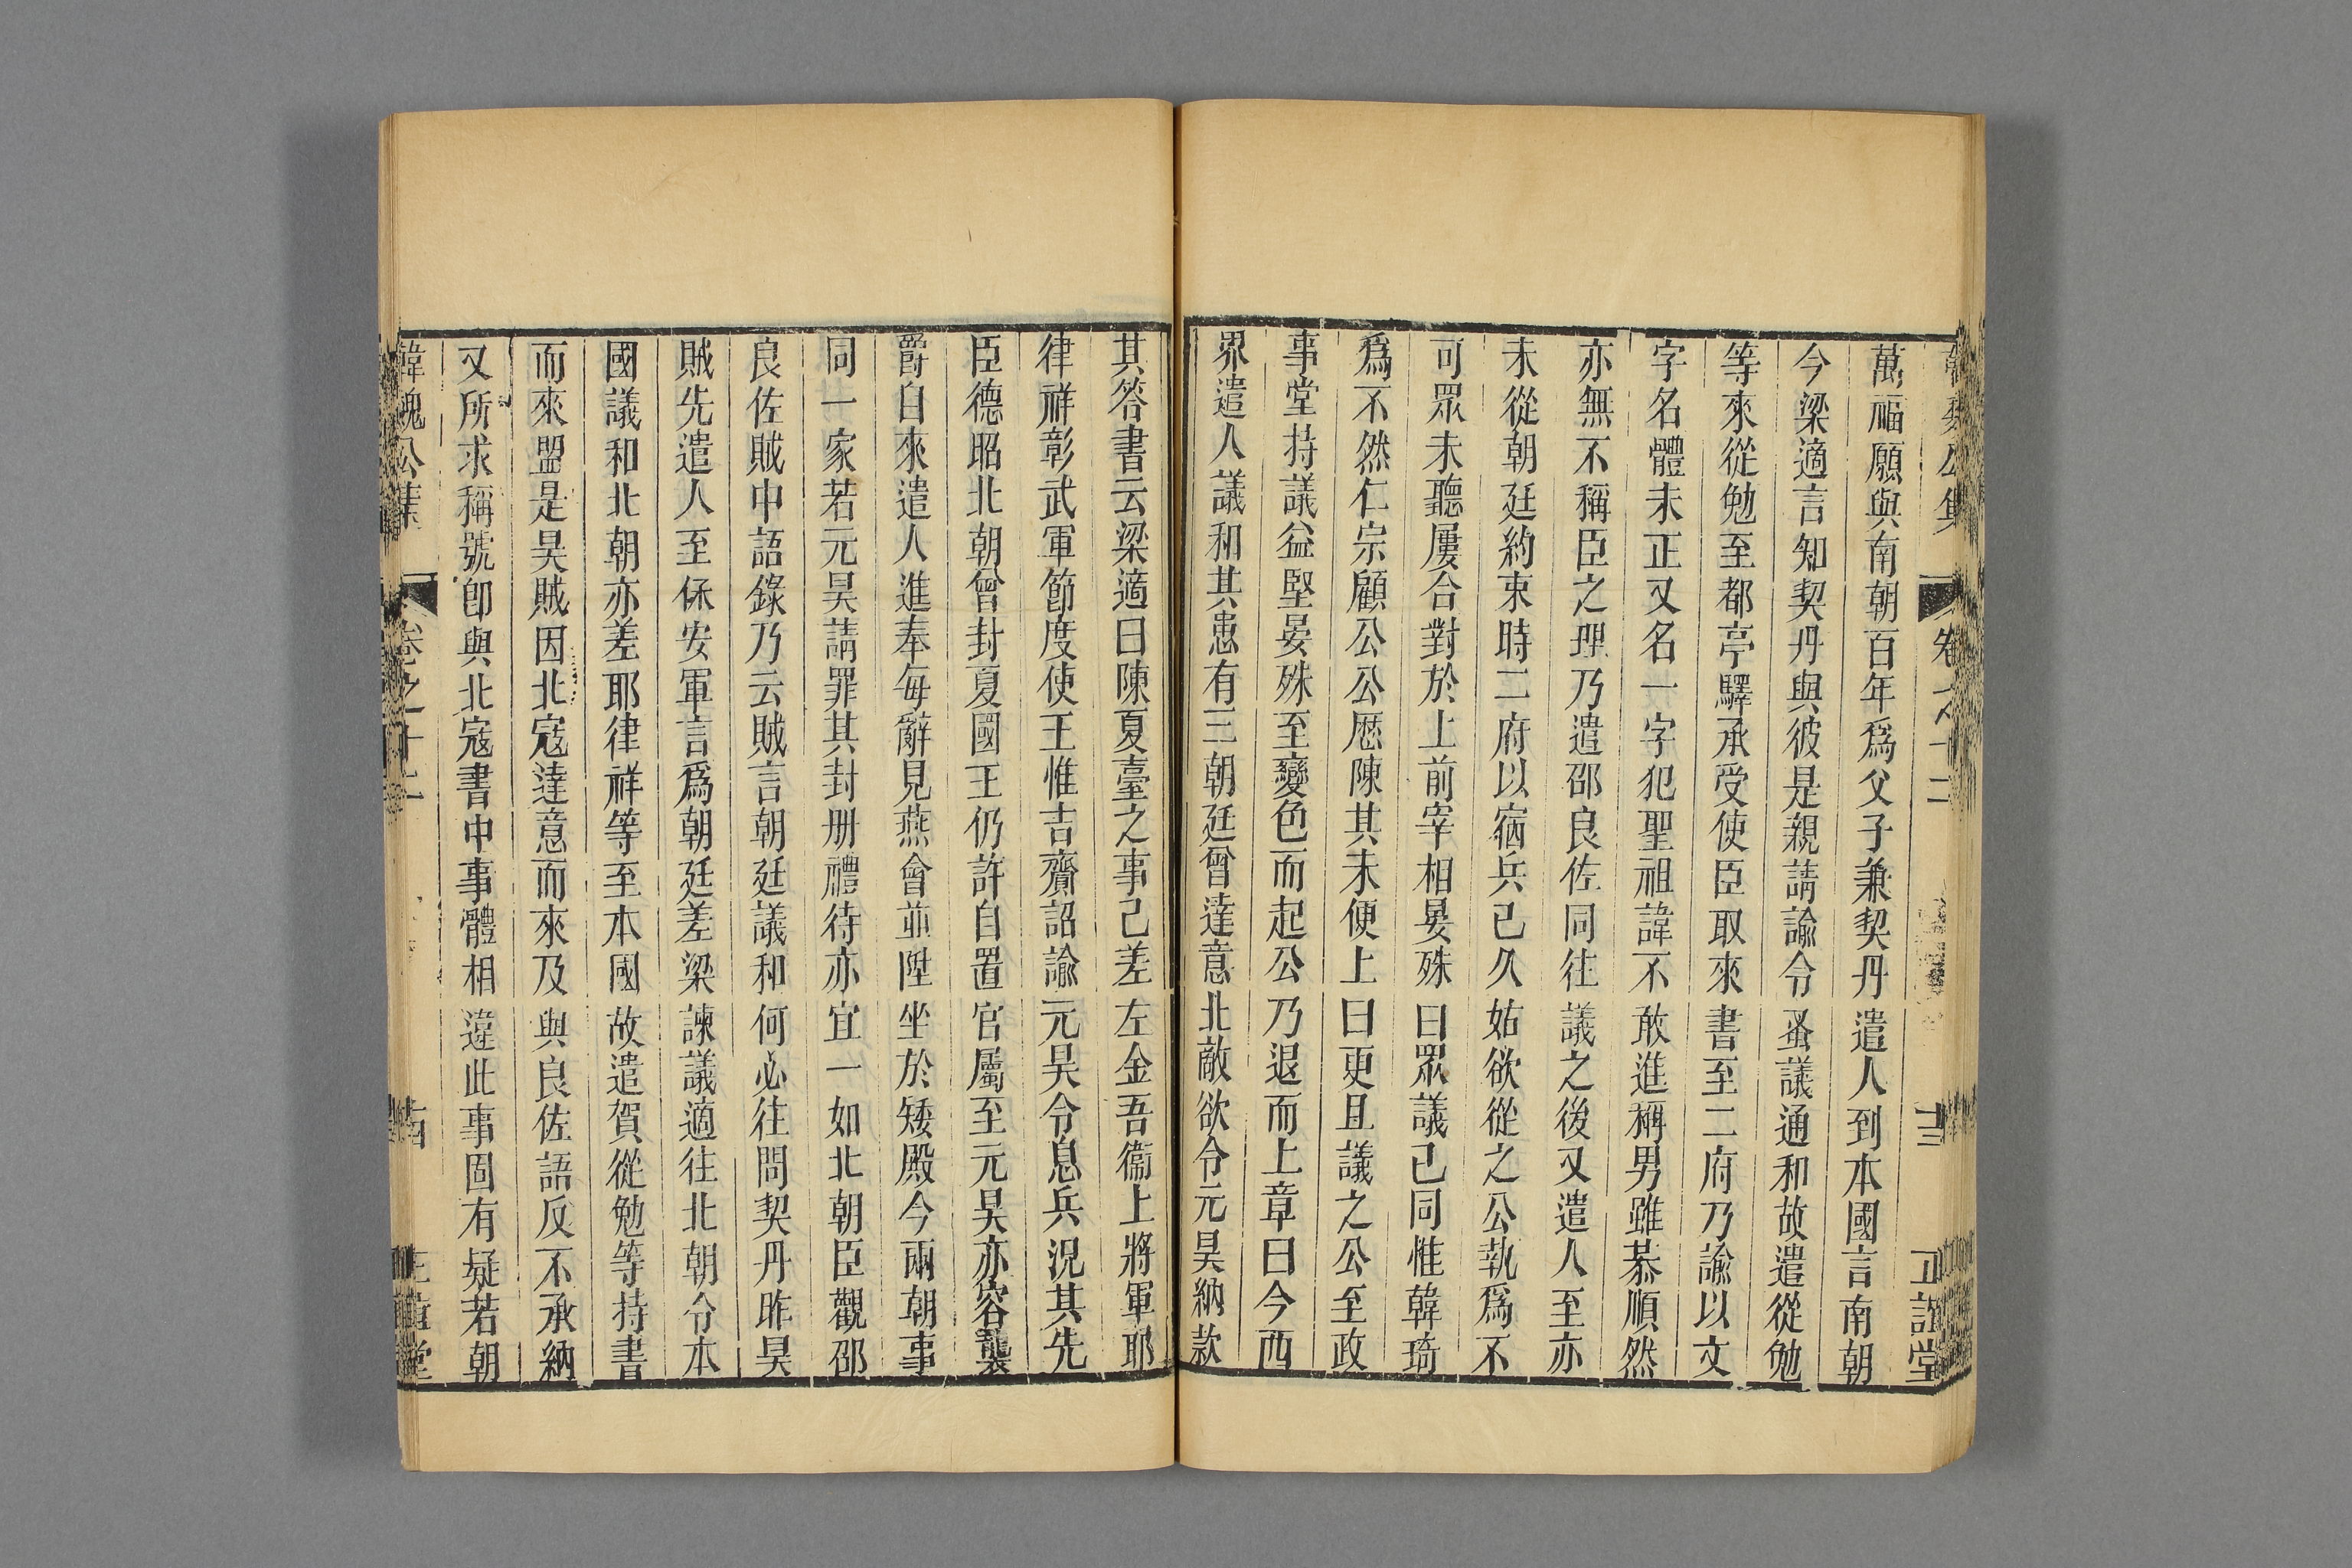 萬福願與南朝百年爲父子兼契丹遣人到本國言南朝
今梁適言知契丹與彼是親請諭令蚤議通和故遣從勉
等來從勉至都亭驛承受使臣取來書至二府乃諭以文
字名體未正又名一字犯聖祖諱不敢進稱男雖恭順然
亦無不稱臣之理乃遣邵良佐同往議之後又遣人至亦
未從朝廷約束時二府以宿兵已久姑欲從之公執爲不
可眾未聽屢合對於上前宰相晏殊曰眾議已同惟韓琦
爲不然仁宗顧公公歷陳其未便上曰更且議之公至政
事堂持議益堅晏殊至變色而起公乃退而上章曰今西
界遣人議和其患有三朝廷曾達意北敵欲令元昊納款
其答書云梁適曰陳夏臺之事已差左金吾衞上將軍耶
律祥彰武軍節度使王惟吉齎詔諭元昊令息兵況其先
臣德昭北朝曾封夏國王仍許自置官屬至元昊亦容襲
爵自來遣人進奉每辭見燕會並陞坐於矮殿今兩朝事
同一家若元昊請罪其封册禮待亦宜一如北朝臣觀邵
良佐賊中語錄乃云賊言朝廷議和何必往問契丹昨昊
賊先遣人至保安軍言爲朝廷差梁諫議適往北朝令本
國議和北朝亦差耶律祥等至本國故遣賀從勉等持書
而來盟是昊賊因北寇達意而來及與良佐語反不承納
又所求稱號卽與北寇書中事體相違此事固有疑若朝
韓魏公集 卷之十二 十四 正誼堂